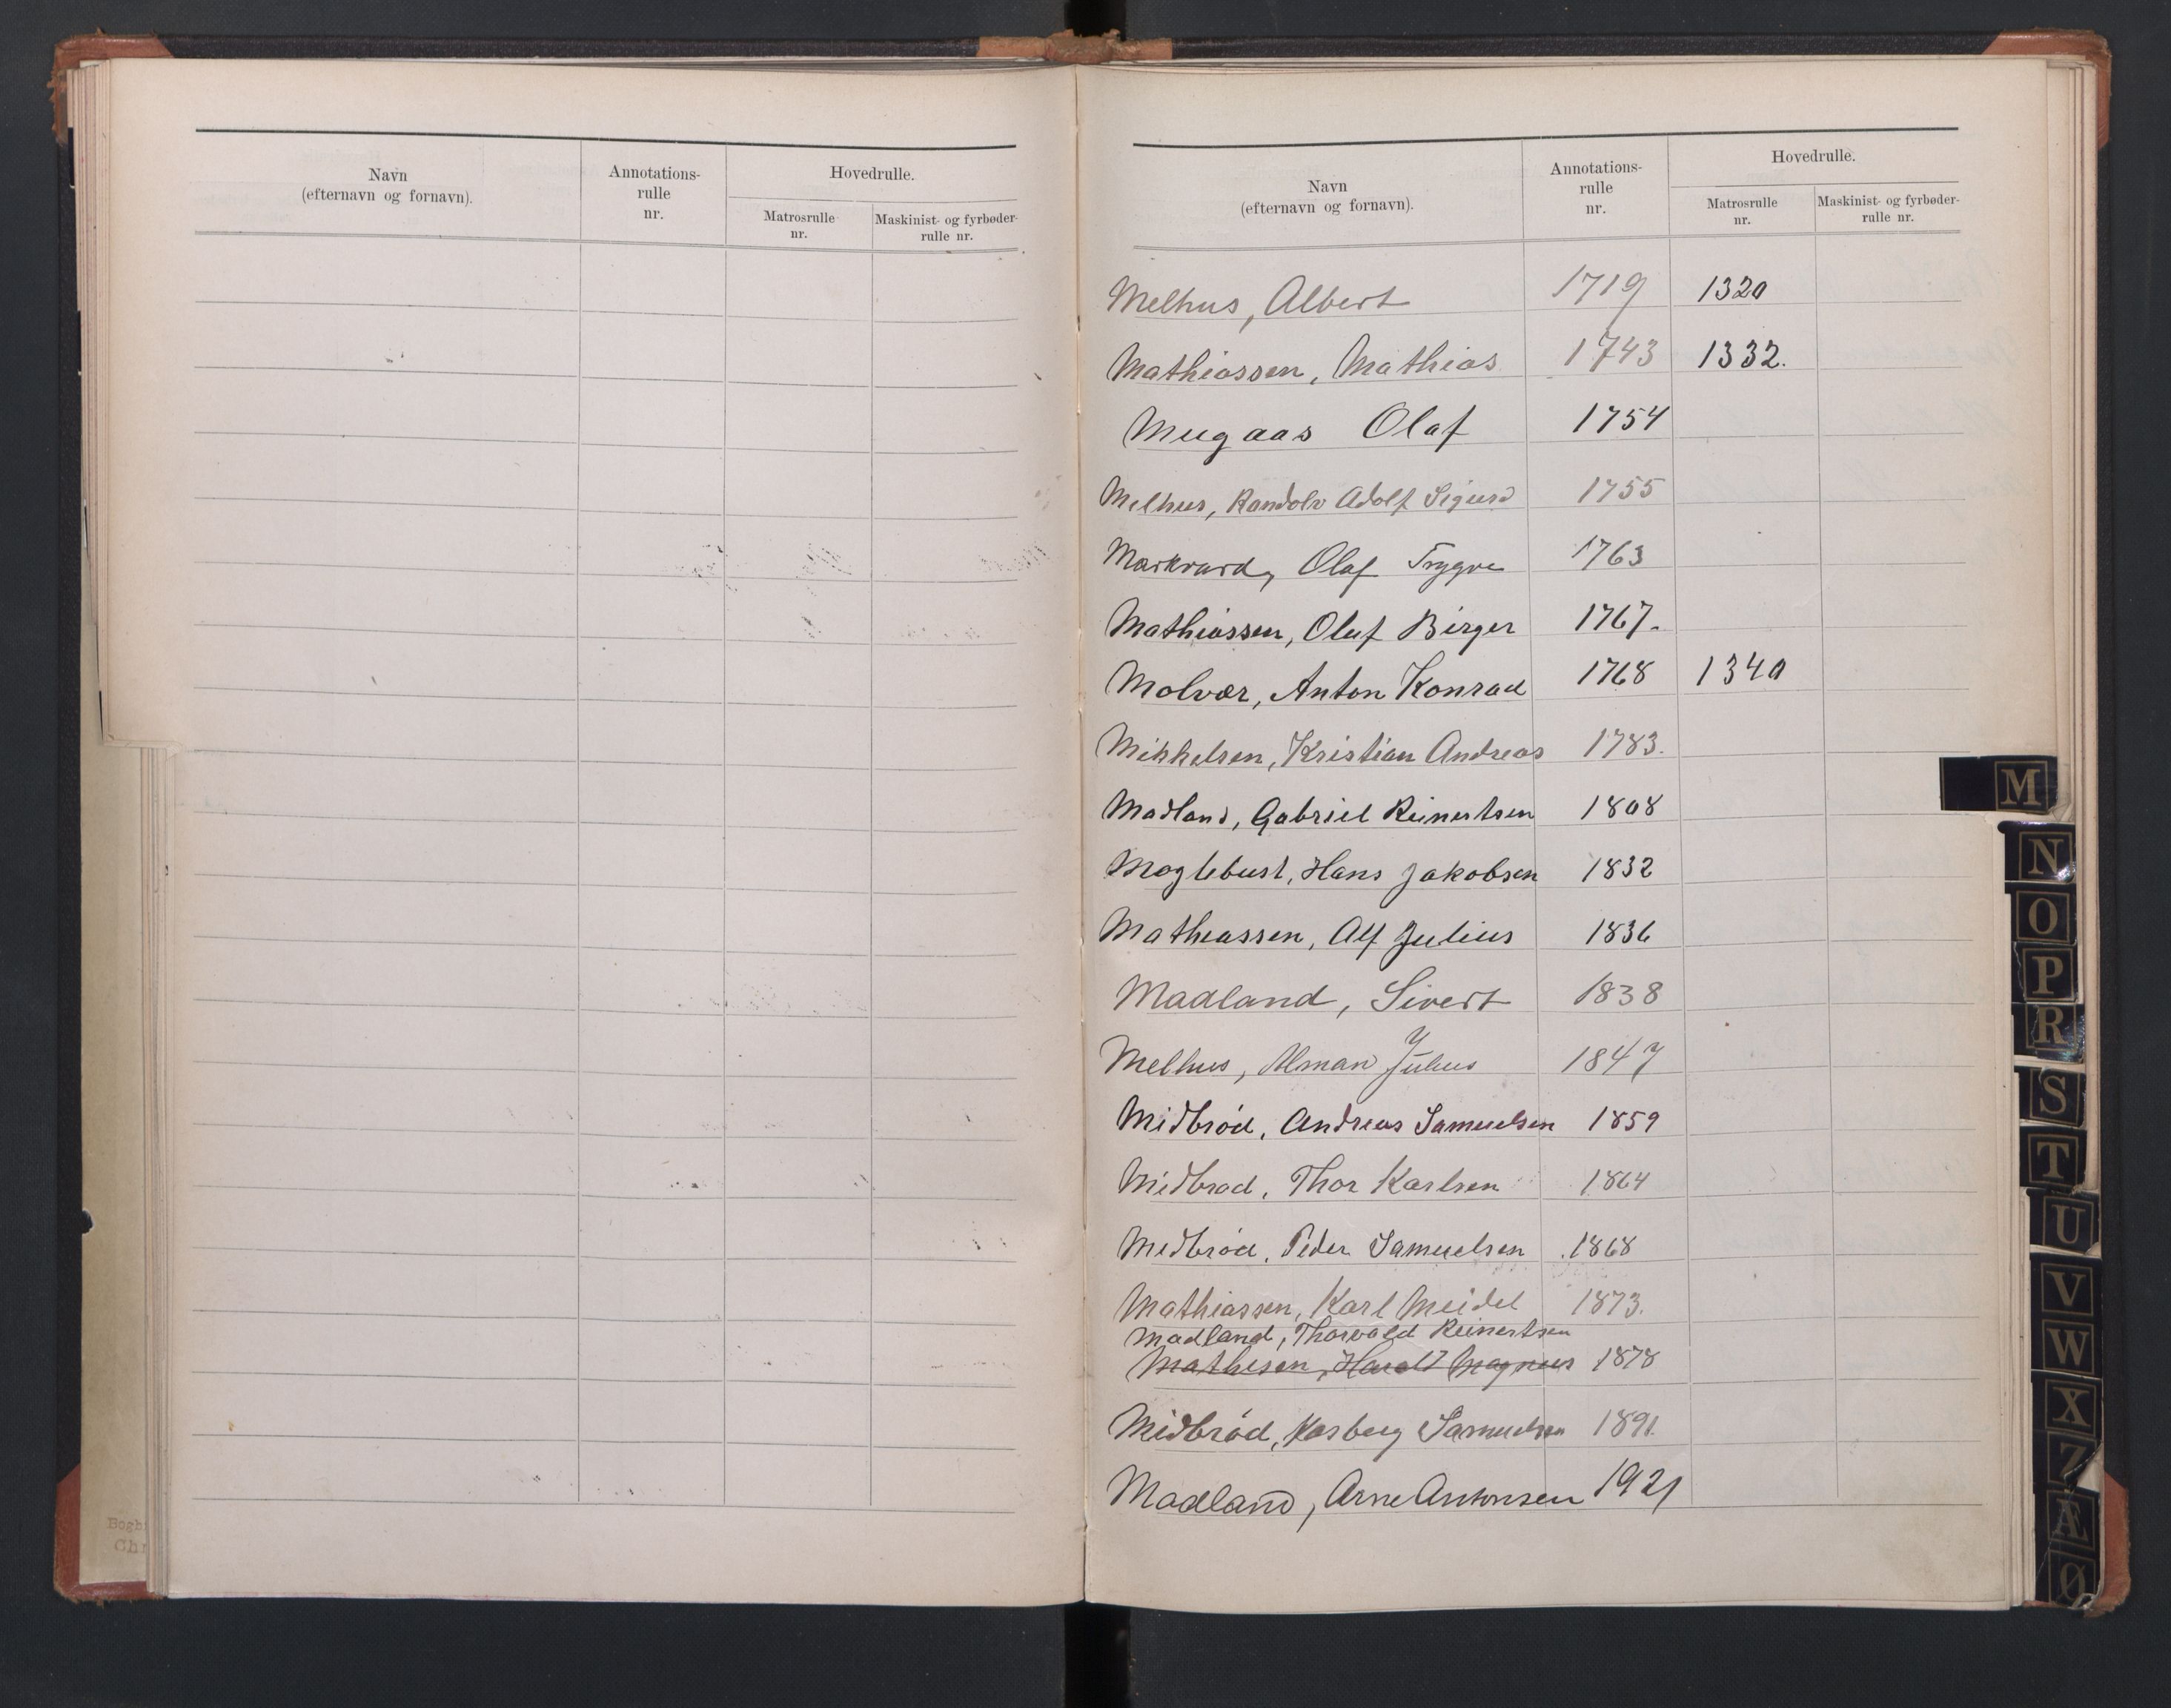 Navn
(efternavn og fornavn).
Annotations-
rulle
nr.
Hovedrulle.
Matrosrulle
nr.
Maskinist- og fyrbøder-
rulle nr.
Navn
(efternavn og fornavn).
Annotations-
rulle
nr.
Hovedrulle.
Matrosrulle
nr.
Maskinist- og fyrbøder-
rulle nr.
Melhus, Albert 1719 1320
Mathiassen, Mathias 1743 1332.
Mugaas Olaf 1754
Melhus, Randolv Adolf Sigurd 1755
Markvard, Olaf Trygve 1763
Mathiassen, Oluf Birger 1767.
Molvær, Anton Konrad 1768 1340
Mikkelsen, Kristian Andreas 1783.
Madland, Gabriel Reinertsen 1808
Moglebust, Hans Jakobsen 1832
Matheassen, Alf Julius 1836
Madland, Sivert 1838
Melhus, Alman Julius 1847
Midbrød, Andreas Samuelsen 1859
Midbrød, Thor Karlsen 1864
Midbrød, Peder Samuelsen 1868
Mathiassen, Karl Meidel 1873.
Madland, Thorvald Reinertsen
Mathisen, Harald Magnus 1878
Midbrød, Samuelsen 1891.
Madland, Arne Antonsen 1921
M
N
O
P
R
S
T
U
V
W
X
Z
Æ
Ø